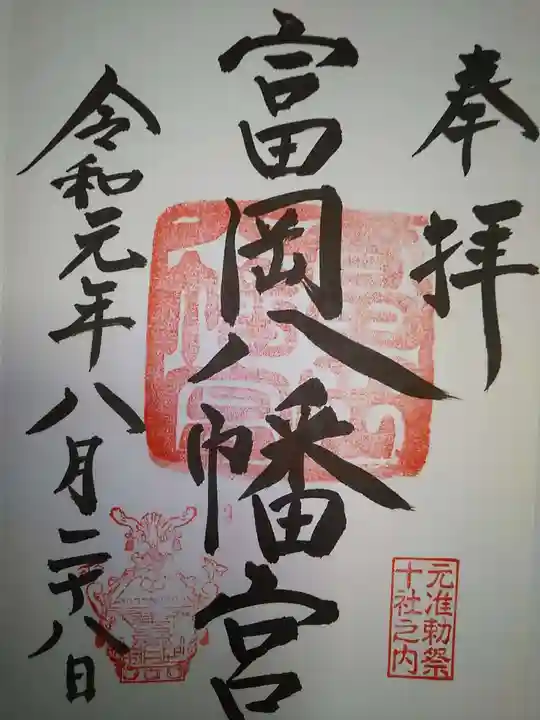 奉拝
富岡八幡宮
令和元年八月二十八日
元准勅祭
十社之内